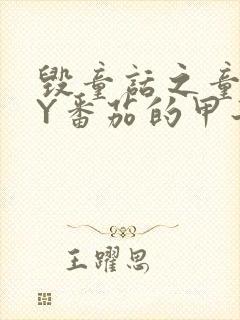 毁童话之童
Y番茄的甲
王躍思